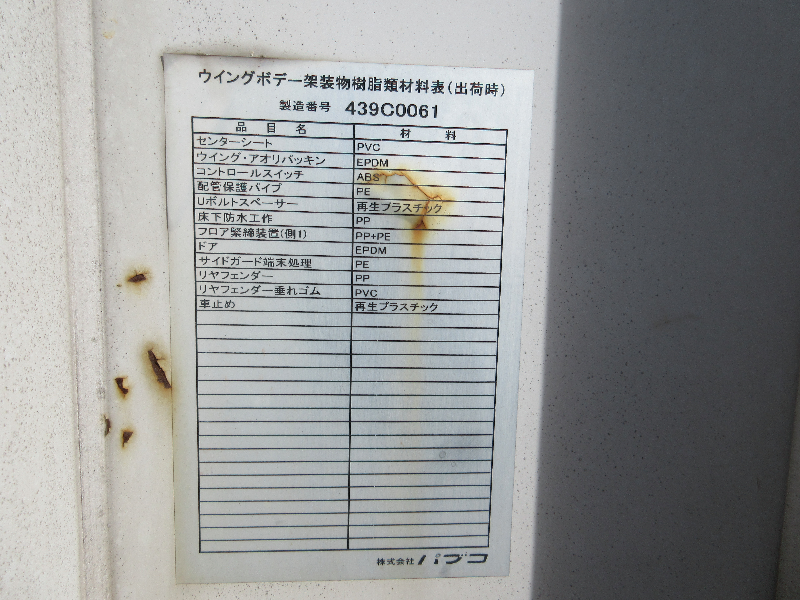 ウイングボデー架装物樹脂類材料表(出荷時)
製造番号 439C0061
品目名 材料
センターシート PVC
ウイング・アオリパッキン EPDM
コントロールスイッチ ABS
配管保護パイプ PE
Uボルトスペーサー 再生プラスチック
床下防水工作 PP
フロア緊締装置(側1) PP+PE
ドア EPDM
サイドガード端末処理 PE
リヤフェンダー PP
リヤフェンダー垂れゴム PVC
車止め 再生プラスチック
株式会社パブコ